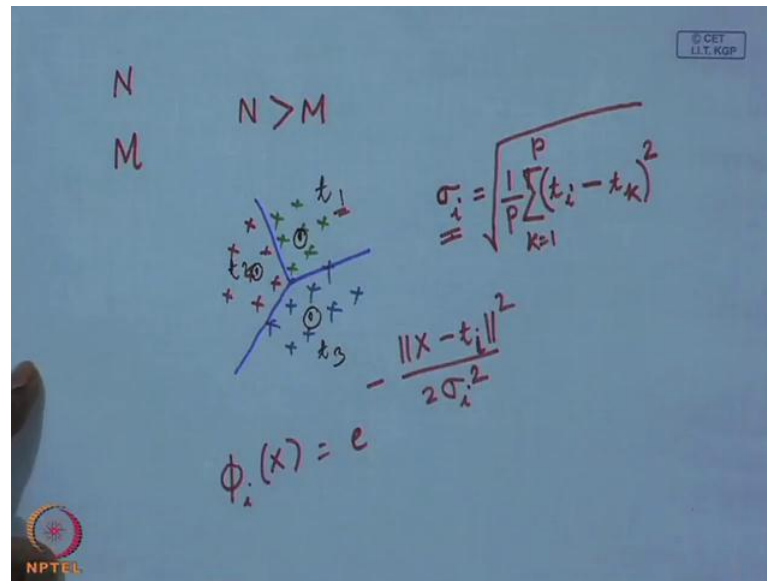 © CET
I.I.T. KGP
N
N > M
M
t₁
t₂
t₃
σᵢ = √(1/P ∑ₖ₌₁ᴾ (tᵢ − tₖ)²)
ϕᵢ(X) = e^(− ||X − tᵢ||² / 2σᵢ²)
NPTEL